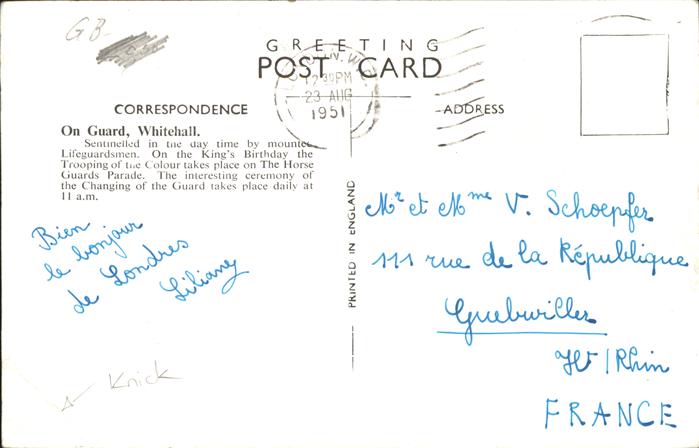 GB-
GREETING
POST CARD
LONDON. W.
12 30 PM
23 AUG
1951
CORRESPONDENCE
ADDRESS
On Guard, Whitehall.
Sentinelled in the day time by mounted
Lifeguardsmen. On the King's Birthday the
Trooping of the Colour takes place on The Horse
Guards Parade. The interesting ceremony of
the Changing of the Guard takes place daily at
11 a.m.
Bien
le bonjour
de Londres
Liliane
Knick
PRINTED IN ENGLAND
Mr et Mme V. Schoepfer
111 rue de la République
Guebwiller
Ht/Rhin
FRANCE